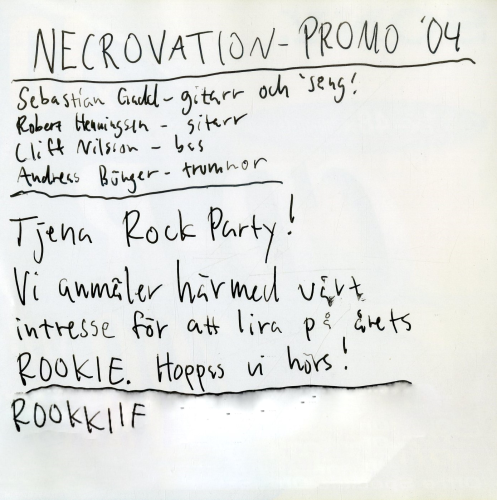 NECROVATION - PROMO '04
Sebastian Gadd - gitarr och 'seng!
Robert Henningsen - gitarr
Cliff Nilsson - bas
Andreas Bünger - trummor
Tjena Rock Party!
Vi anmäler härmed vårt
intresse för att lira på årets
ROOKIE. Hoppas vi hörs!
ROOKKIIF